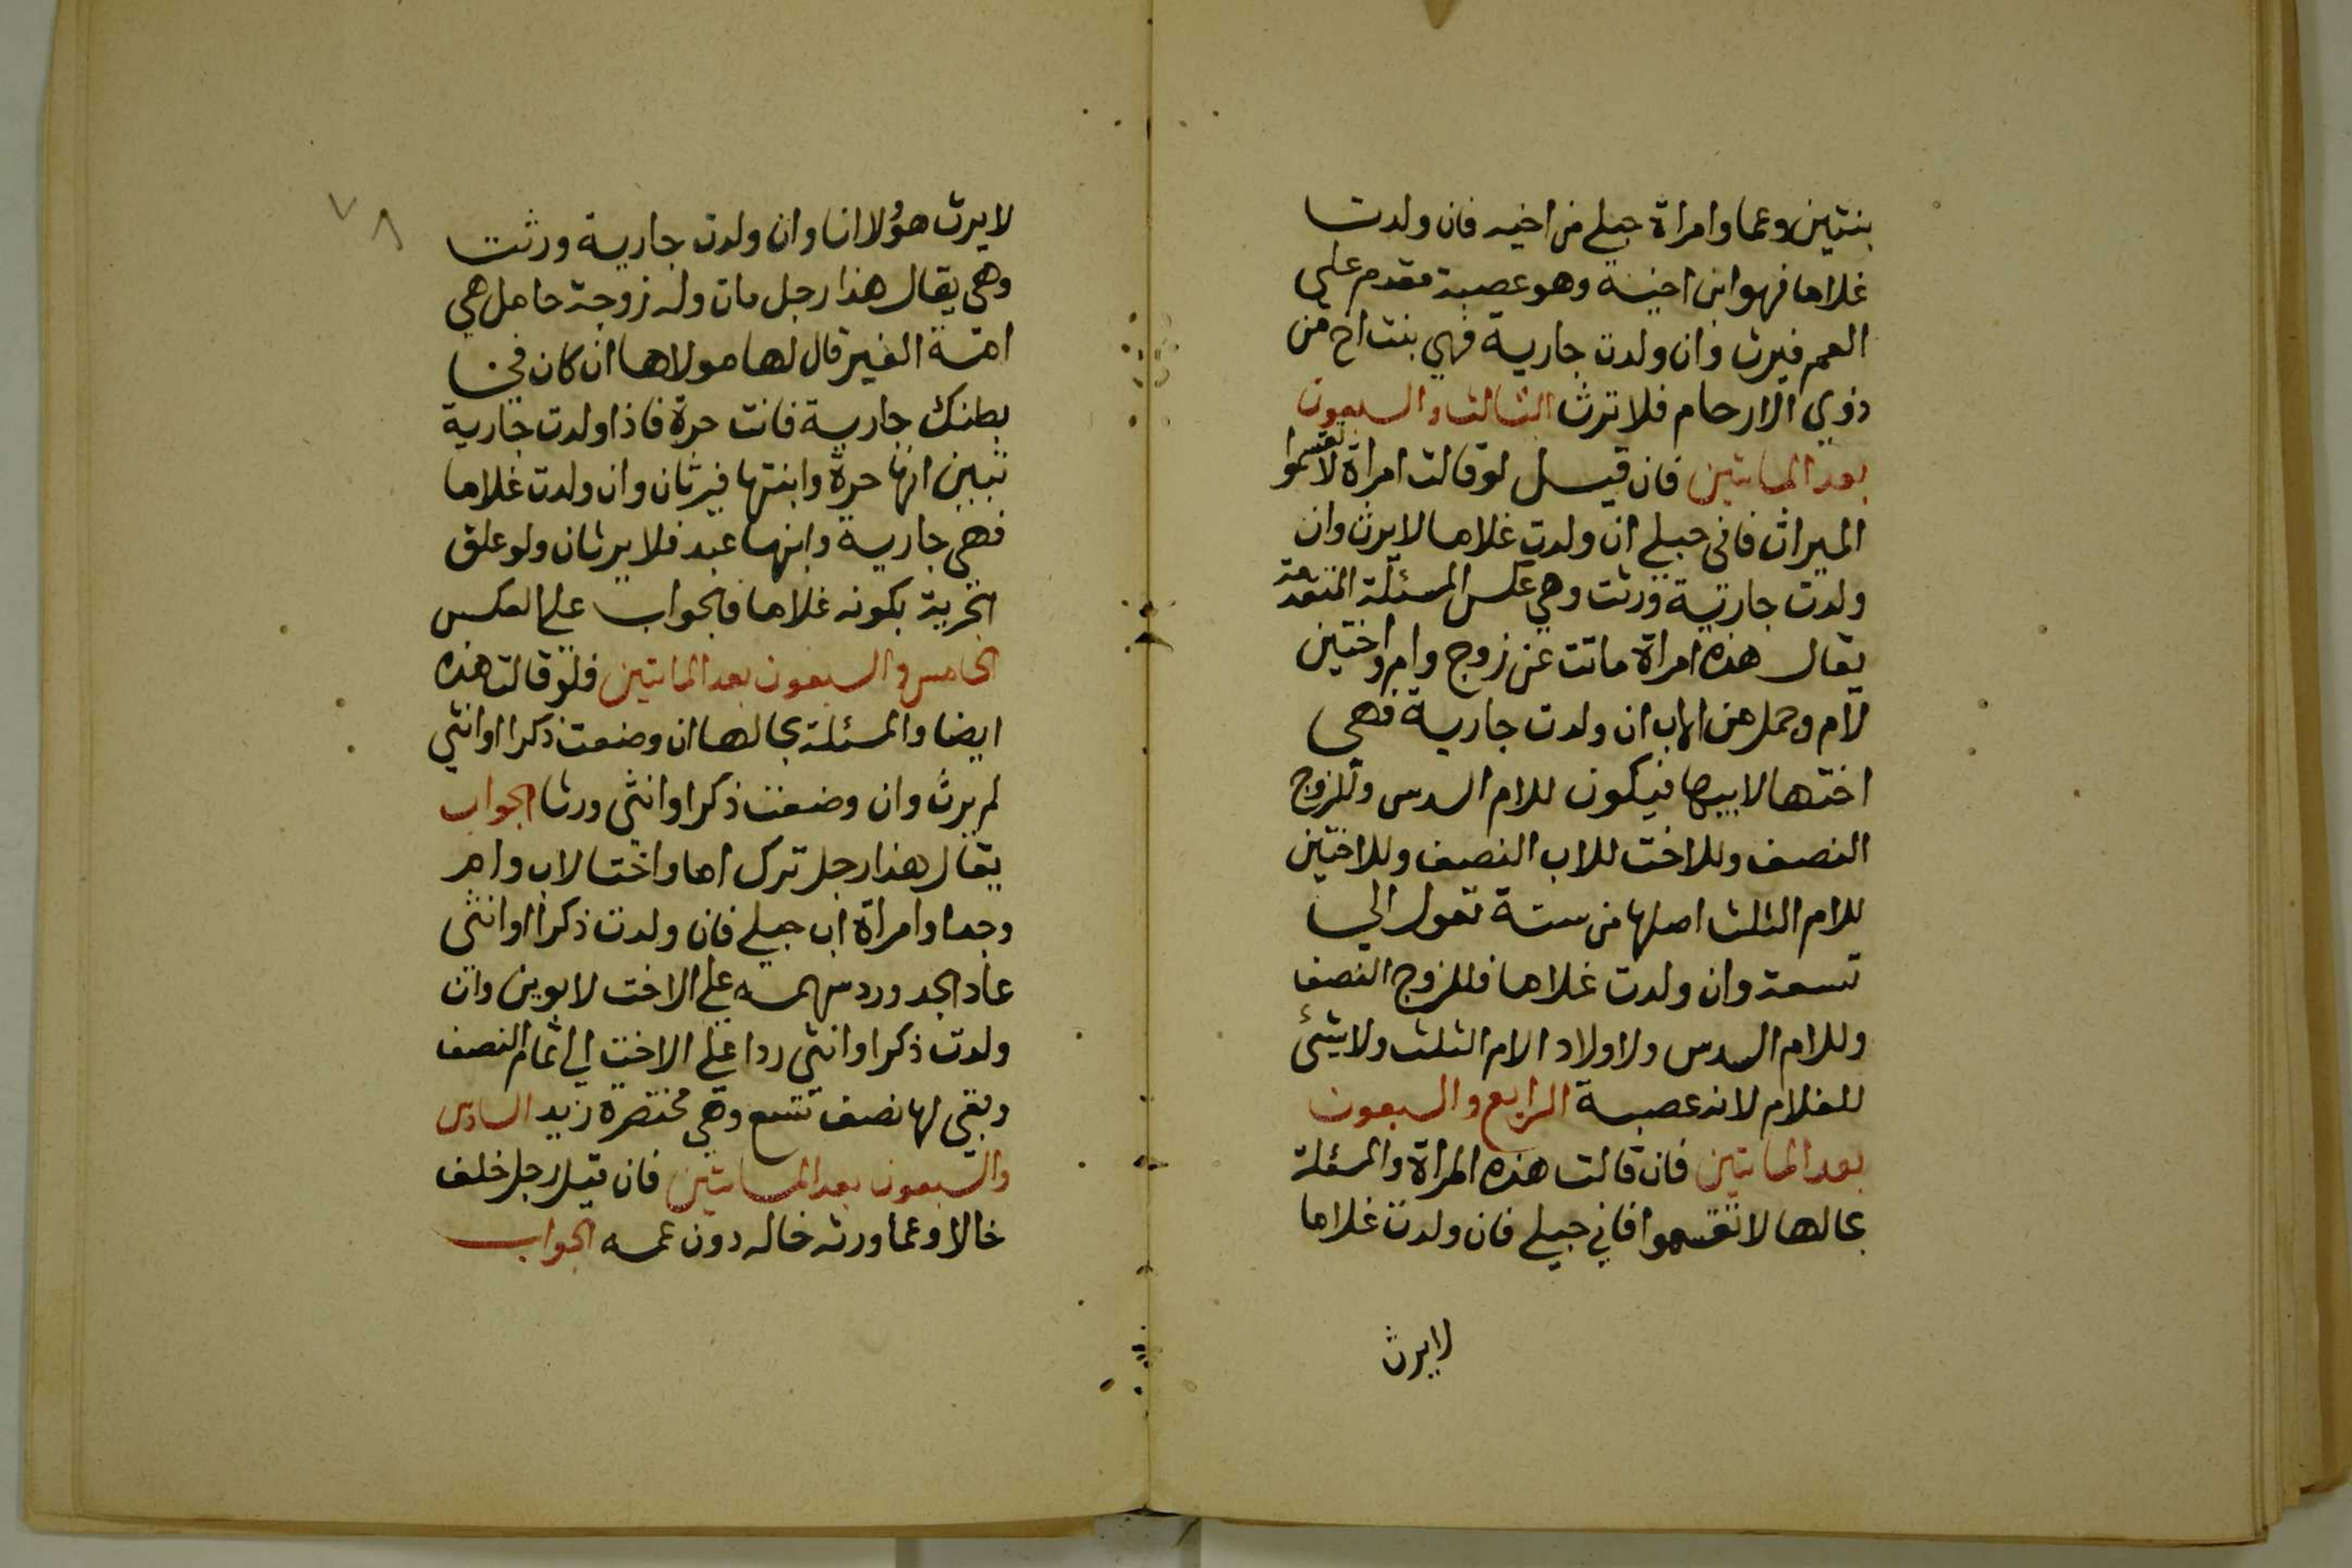 بنتين وعما وامراة حبلى من اخيه فان ولدت
غلاما فهو ابن اخيه وهو عصبة مقدم على
العم فيرث وان ولدت جارية فهي بنت اخ من
ذوي الارحام فلا ترث الثالث والسبعون
بعد المائتين فان قيل لو قالت امراة لا تقسموا
الميراث فانى حبلى ان ولدت غلاما لا يرث وان
ولدت جارية ورثت وهي عكس المسئلة المتقدمة
يقال هذه امراة ماتت عن زوج وام واختين
لام وحمل من الاب ان ولدت جارية فهي
اختها لابيها فيكون للام السدس وللزوج
النصف وللاخت للاب النصف وللاختين
للام الثلث اصلها من ستة تعول الى
تسعة وان ولدت غلاما فللزوج النصف
وللام السدس ولاولاد الام الثلث ولا شئ
للغلام لانه عصبة الرابع والسبعون
بعد المائتين فان قالت هذه المراة والمسئلة
بحالها لا تقسموا فاني حبلى فان ولدت غلاما
لا يرث
٧٨
لا يرث هؤلا انا وان ولدت جارية ورثت
وهي يقال هذا رجل مات وله زوجة حامل هي
امة الغير قال لها مولاها ان كان في
بطنك جارية فانت حرة فاذا ولدت جارية
تبين انها حرة وابنتها فيرثان وان ولدت غلاما
فهي جارية وابنها عبد فلا يرثان ولو علق
الحرية بكونه غلاما فالجواب على العكس
الخامس والسبعون بعد المائتين فلو قالت هذه
ايضا والمسئلة بحالها ان وضعت ذكرا او انثى
لم يرث وان وضعت ذكرا وانثى ورثا الجواب
يقال هذا رجل ترك اما واختا لاب وام
وجدا وامراة اب حبلى فان ولدت ذكرا او انثى
عاد الجد ورد سهمه على الاخت لابوين وان
ولدت ذكرا وانثى ردا على الاخت الى تمام النصف
وبقي لها نصف تسع وهي مختصرة زيد السادس
والسبعون بعد المائتين فان قيل رجل خلف
خالا وعما ورثه خاله دون عمه الجواب